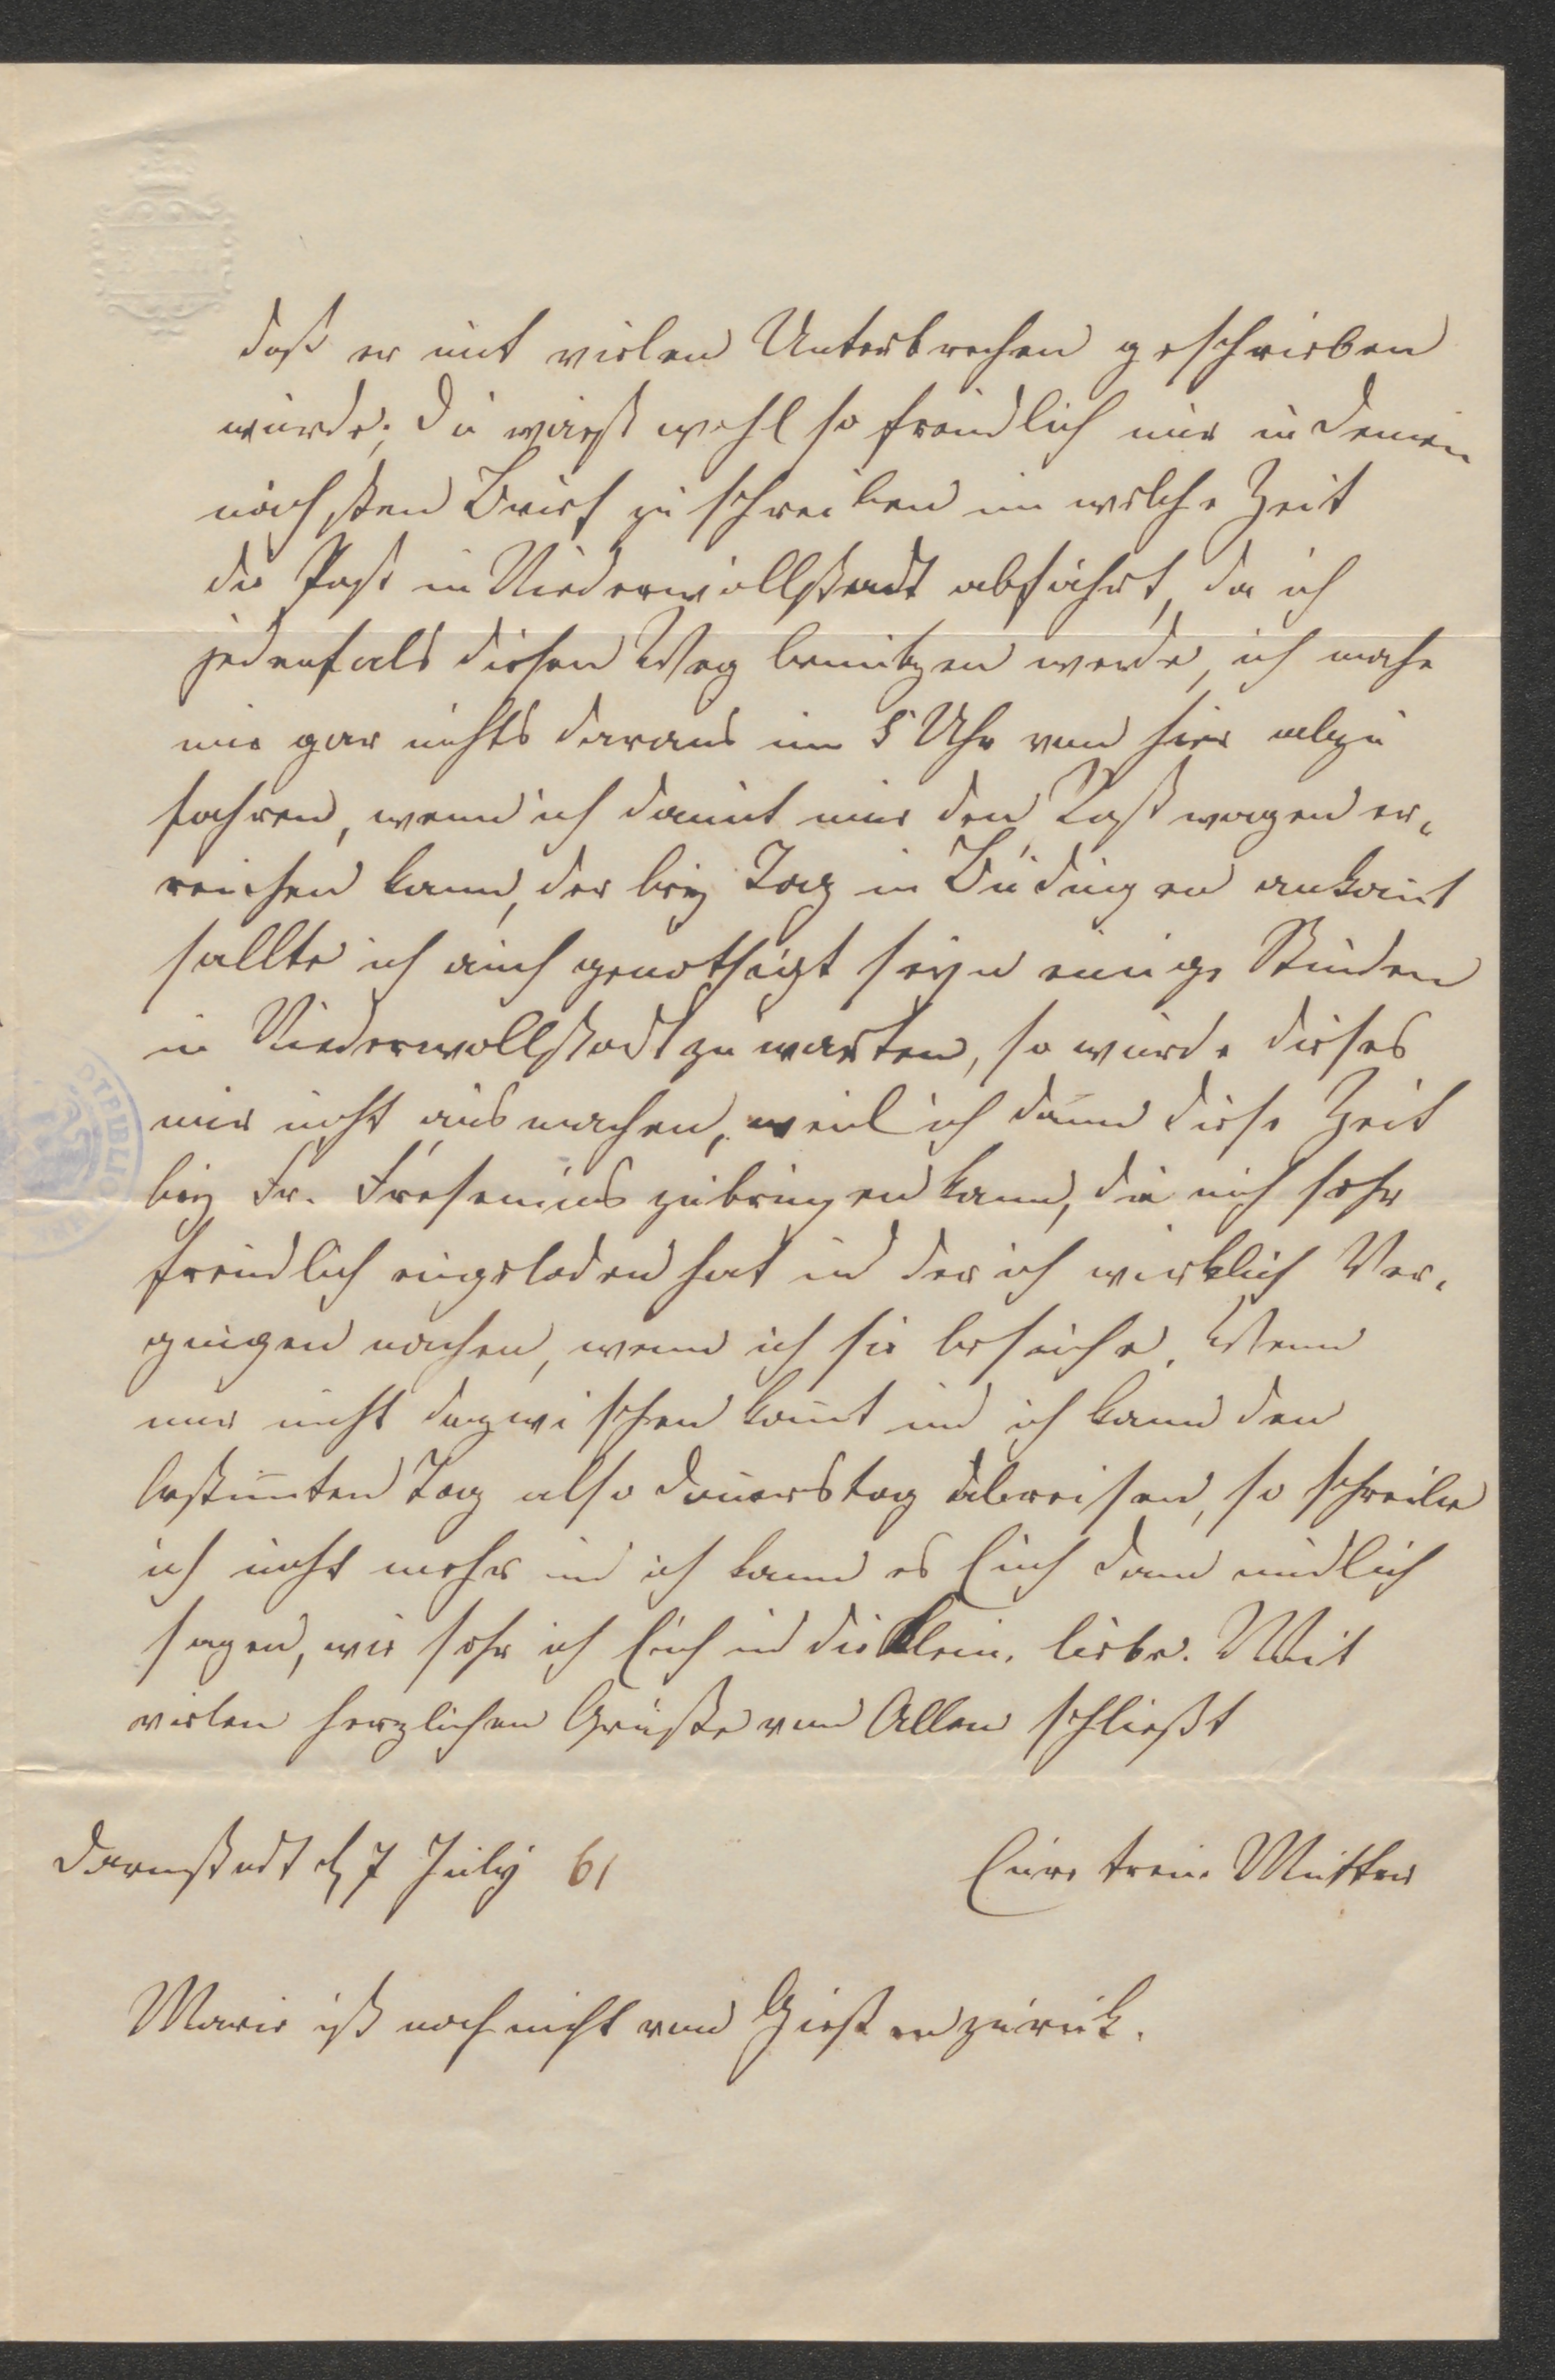 daß er mit vielen Unterbrechen geschrieben
wurde; Du wirst wohl so freundlich mir in Deinen
nächsten Brief zu schreiben um welche Zeit
die Post in Niederwöllstadt abfährt, da ich
jedenfals diesen Weg benutzen werde, ich mache
mir gar nichts daraus um 5 Uhr von hier abzu
fahren, wenn ich damit nur den Postwagen er„
reichen kann, der bey Tag in Büdingen ankom̄t
sollte ich auch genothigt seyn einige Stunden
in Niederwollstadt zu warten, so würde dieses
mir nicht ausmachen, weil ich dann diese Zeit
bey Fr. Fresenius zubringen kann, die mich sehr
freundlich eingeladen hat und der ich wirklich Ver„
gnügen machen, wenn ich sie besuche. Wenn
nur nicht dazwischen kom̄t und ich kann den
bestim̄ten Tag also Donnerstag abreisen, so schreibe
ich nicht mehr und ich kann es Euch dann mündlich
sagen, wie sehr ich Euch und die Klein. liebe. Mit
vielen herzlichen Grüße von Allen schließt
Darmstadt d 7 July 61
Eure treue Mutter
Marie ist noch nicht von Gießen zurück.